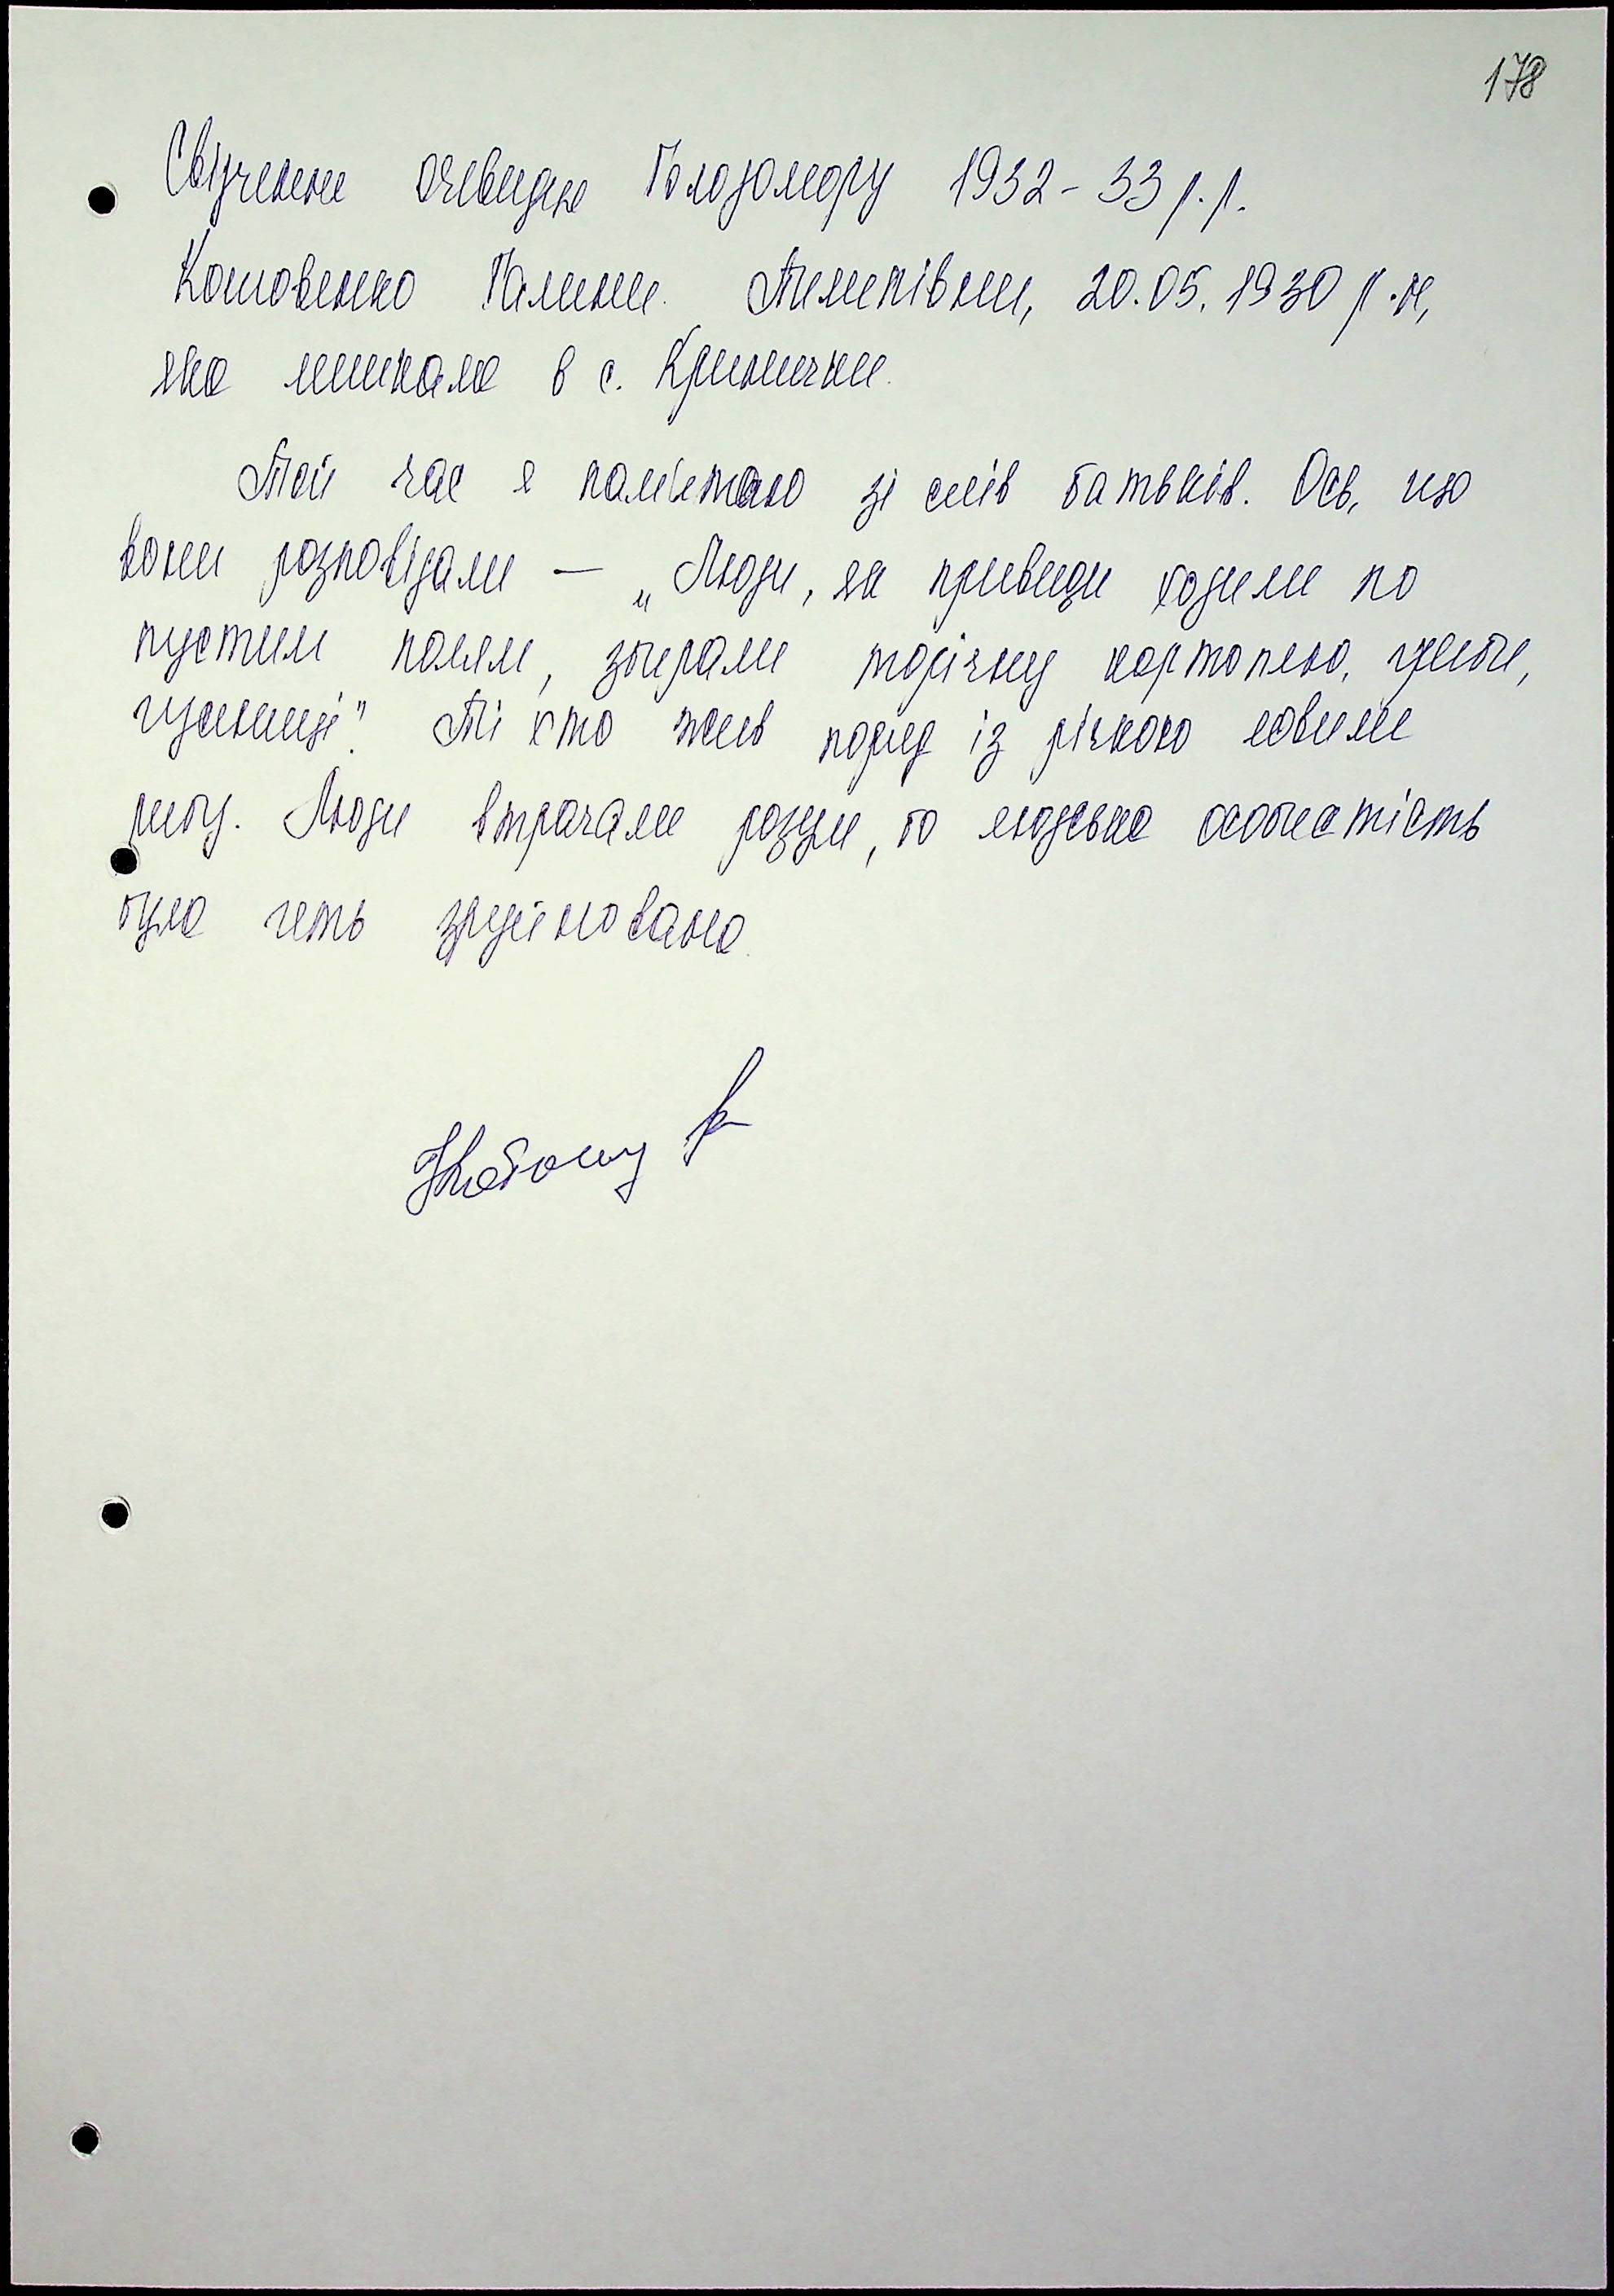 178
Свідчення очевидця Голодомору 1932-33 р.р.
Кошовенко Галини Пилипівни, 20.05.1930 р.н,
яка мешкала в с. Кринички.
Той час я пам'ятаю зі слів батьків. Ось, що
вони розповідали — „Люди, як привиди ходили по
пустим полям, збирали торічну картоплю, гриби,
гусениці". Ті хто жив поряд із річкою ловили
рибу. Люди втрачали розум, бо людська особистість
була геть зруйнована.